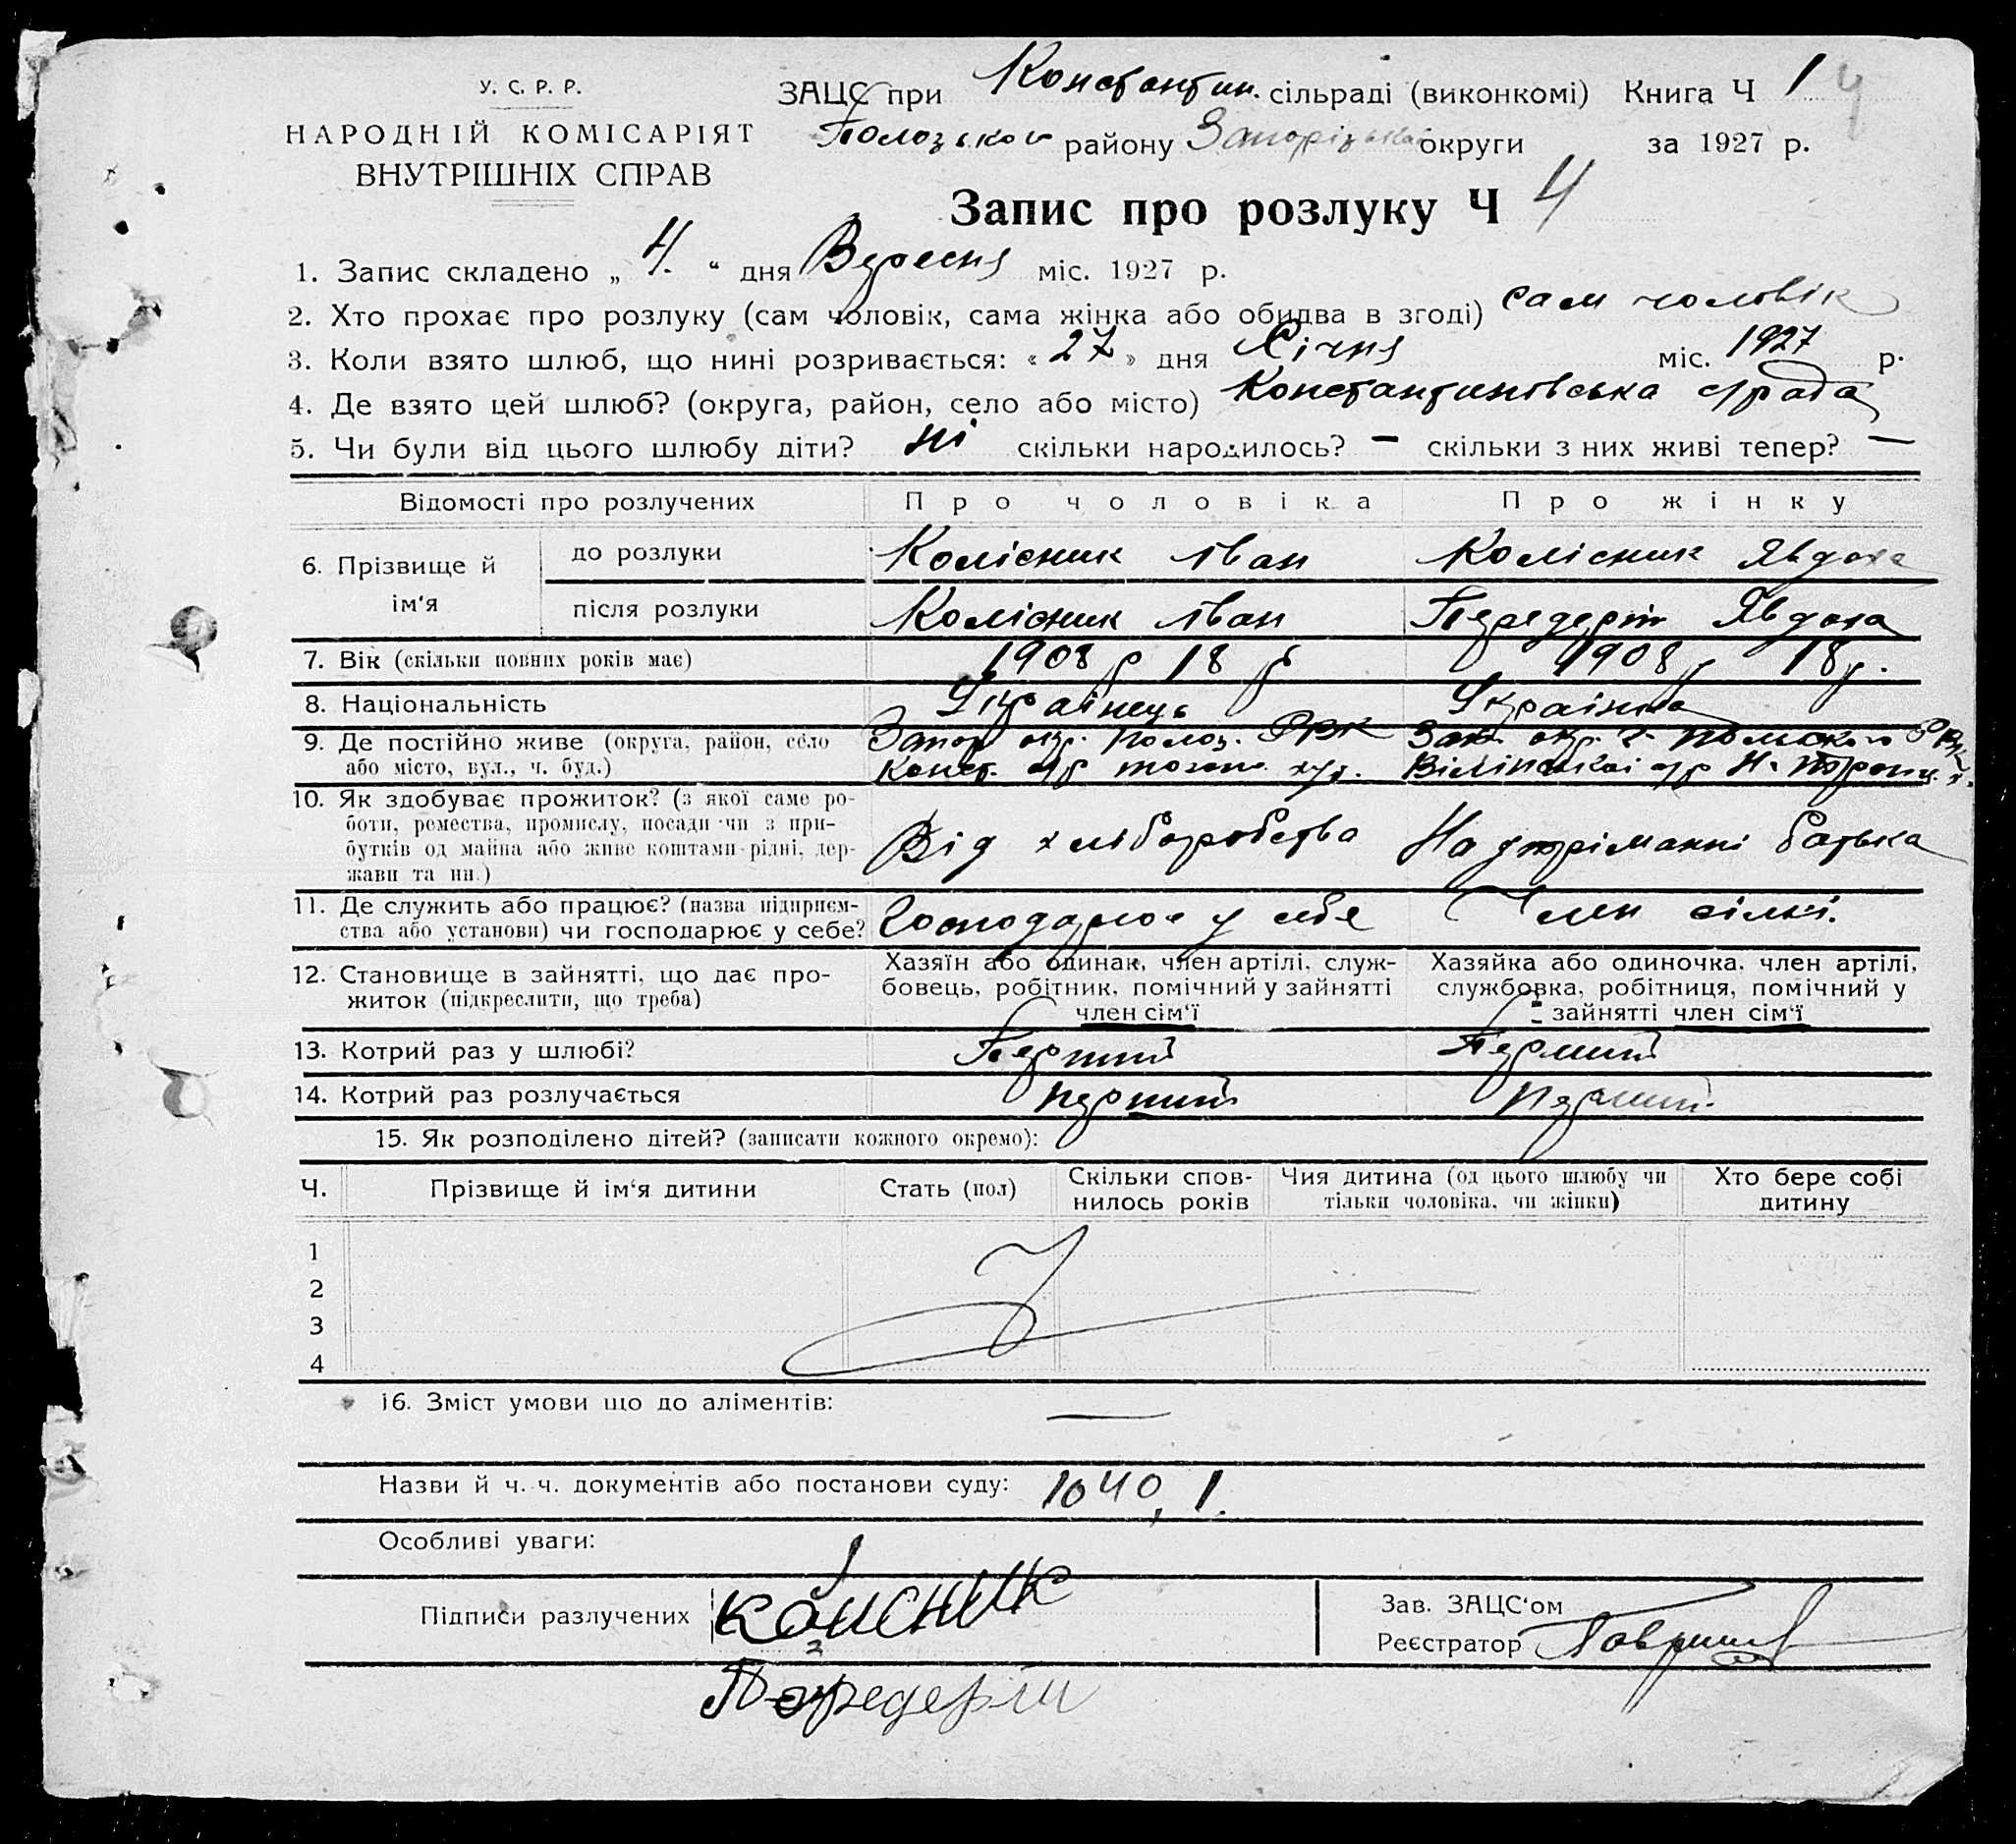 У. С. Р. Р.
НАРОДНІЙ КОМІСАРІЯТ
ВНУТРІШНІХ СПРАВ
ЗАЦС при Константин. сільраді (виконкомі) Книга Ч 1 4
району Запорізької округи за 1927 р.
Запис про розлуку Ч 4
1. Запис складено „ 4. “ дня Вересня міс. 1927 р.
2. Хто прохає про розлуку (сам чоловік, сама жінка або обидва в згоді) сам чоловік
3. Коли взято шлюб, що нині розривається: « 27 » дня Січня міс. 1927 р.
4. Де взято цей шлюб? (округа, район, село або місто) Константинівська с/рада
5. Чи були від цього шлюбу діти? ні скільки народилось? — скільки з них живі тепер? —
Відомості про розлучених Про чоловіка Про жінку
6. Прізвище й ім‘я
до розлуки Колісник Іван Колісник Явдоха
після розлуки Колісник Іван Передерій Явдоха
7. Вік (скільки повних років має) 1908 р 18 р 1908 р 18 р.
8. Національність Українець Українка
9. Де постійно живе (округа, район, село Запор окр. Полог. РВК
або місто, вул., ч. буд.) Конст. с/р
10. Як здобуває прожиток? (з якої саме ро-
боти, ремества, промислу, посади чи з при-
бутків од майна або живе коштами рідні, дер-
жави та ин.)
Від хліборобства На утріманні батька
11. Де служить або працює? (назва підприєм-
ства або установи) чи господарює у себе?
Господарює у себе Член сімьї.
12. Становище в зайнятті, що дає про-
житок (підкреслити, що треба)
Хазяїн або одинак, член артілі, служ-
бовець, робітник, помічний у зайнятті
член сім‘ї
Хазяйка або одиночка, член артілі,
службовка, робітниця, помічний у
зайнятті член сім‘ї
13. Котрий раз у шлюбі? Перший Перший
14. Котрий раз розлучається перший перший
15. Як розподілено дітей? (записати кожного окремо):
Ч. Прізвище й ім‘я дитини Стать (пол) Скільки спов-
нилось років Чия дитина (од цього шлюбу чи
тільки чоловіка, чи жінки) Хто бере собі
дитину
1
2
3
4
16. Зміст умови що до аліментів: —
Назви й ч. ч. документів або постанови суду: 1040, 1.
Особливі уваги:
Підписи разлучених Колисник
Зав. ЗАЦС‘ом
Реєстратор
Передерій